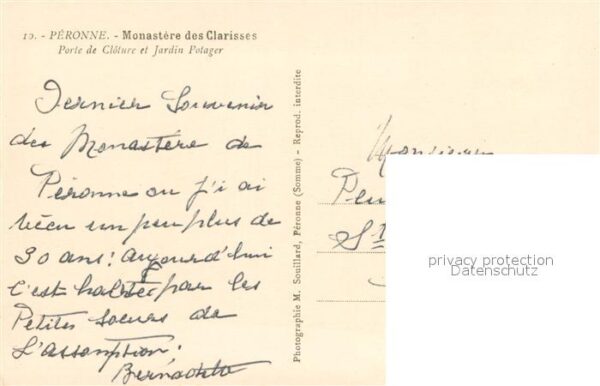 10. - PÉRONNE. - Monastère des Clarisses
Porte de Clôture et Jardin Potager
Dernier Souvenir
du Monastère de
Péronne ou j'i ai
vécu un peu plus de
30 ans! aujourd'hui
c'est habité par les
Petites soeurs de
L'assomption.
Bernadette
Photographie M. Souillard, Péronne (Somme) - Reprod. interdite
Monsieur
privacy protection
Datenschutz